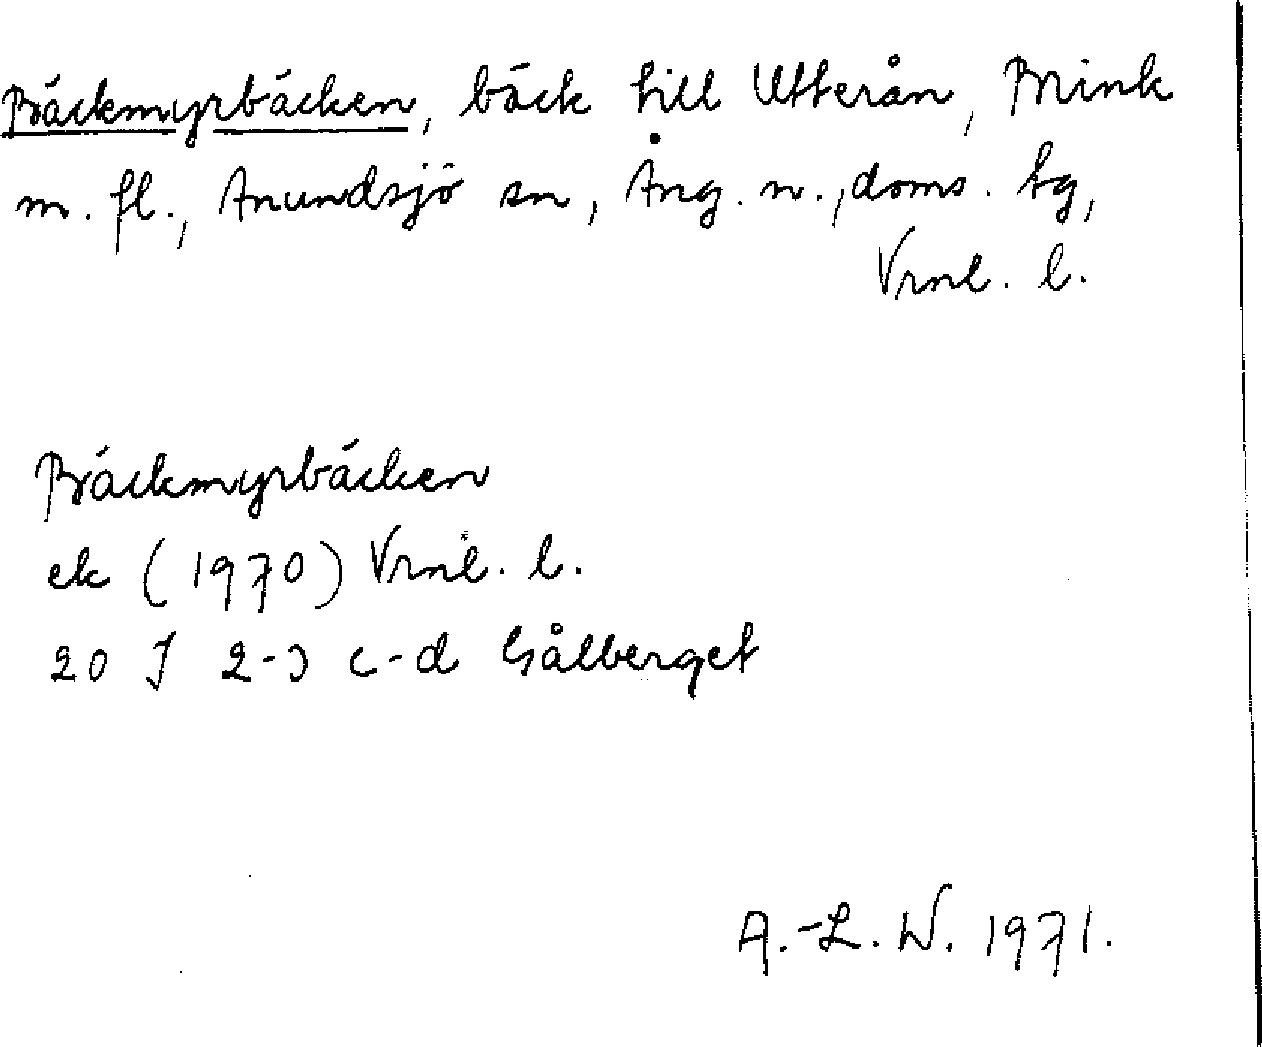 Bäckmyrbäcken, bäck till Utterån, Brink
m. fl., Anundsjö sn, Ång. n., doms. bg,
Vrnl. l.
Bäckmyrbäcken
ek (1970) Vrnl. l.
20 J 2-3 c-d Gålberget
A.-L. W. 1971.